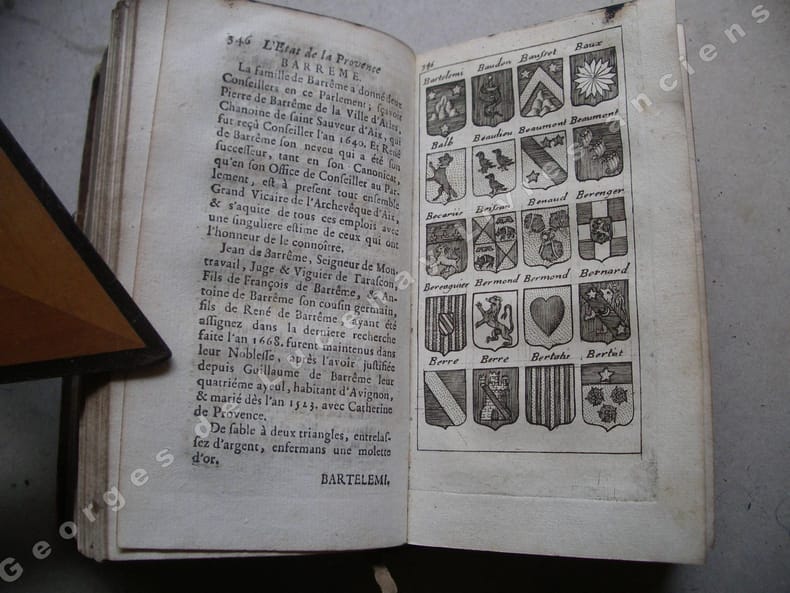 346 L'Etat de la Provence
BARREME.
La famille de Barrême a donné deux
Conseillers en ce Parlement; sçavoir
Pierre de Barrême de la Ville d'Arles,
Chanoine de saint Sauveur d'Aix, qui
fut reçû Conseiller l'an 1640. Et René
de Barrême son neveu qui a été son
successeur, tant en son Canonicat,
qu'en son Office de Conseiller au Par-
lement, est à présent tout ensemble
Grand Vicaire de l'Archevêque d'Aix,
& s'aquite de tous ces emplois avec
une singuliere estime de ceux qui ont
l'honneur de le connoître.
Jean de Barrême, Seigneur de Mon-
travail, Juge & Viguier de Tarascon,
Fils de François de Barrême, & An-
toine de Barrême son cousin germain,
fils de René de Barrême, ayant été
assignez dans la derniere recherche
faite l'an 1668. furent maintenus dans
leur Noblesse, après l'avoir justifiée
depuis Guillaume de Barrême leur
quatriéme ayeul, habitant d'Avignon,
& marié dès l'an 1523. avec Catherine
de Provence.
De sable à deux triangles, entrelas-
sez d'argent, enfermans une molette
d'or.
BARTELEMI,
346
Bartelemi Baudon Bausset Baux
Balb Beaulieu Beaumont Beaumont
Becariis Benaud Berenger
Berenguier Bermond Bermond Bernard
Berre Berre Bertatis Bertet
Georges de Lucenay livres anciens